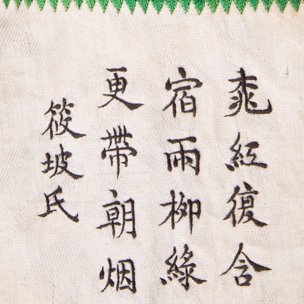 桃紅復含
宿雨柳綠
更帶朝烟
筱坡氏